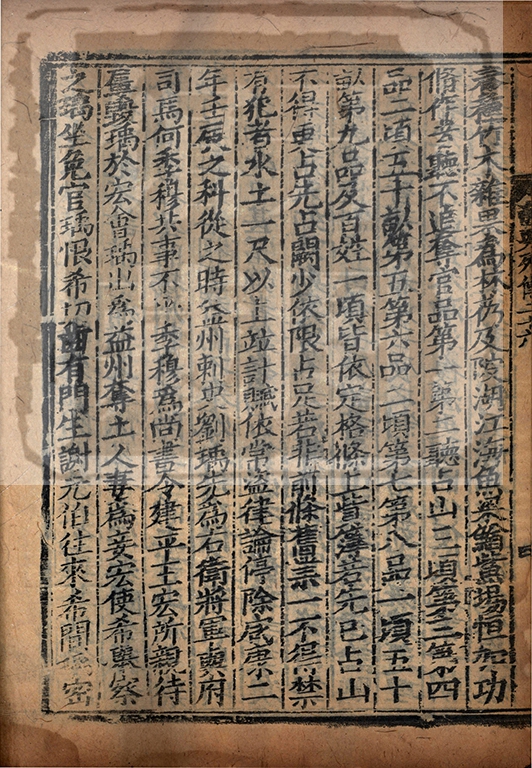 養種竹木雜果爲林芿及陂湖江海魚梁鰌鮆塲恒加功
脩作者聽不追奪官品第一第二聽占山三頃第三第四
品二頃五十畝第五第六品二頃第七第八品一頃五十
畝第九品及百姓一頃皆依定格條上貲簿若先已占山
不得更占先占闕少依限占足若非前條舊業一不得禁
有犯者水土一尺以上並計贓依常盜律論停除咸康二
年壬辰之科從之時益州刺史劉瑀先爲右衛將軍與府
司馬何季穆共事不平季穆爲尚書令建平王宏所親待
屢毀瑀於宏會瑀出爲益州奪士人妻爲妾宏使希舉察
之瑀坐免官瑀恨希切齒有門生謝元伯往來希間瑀密